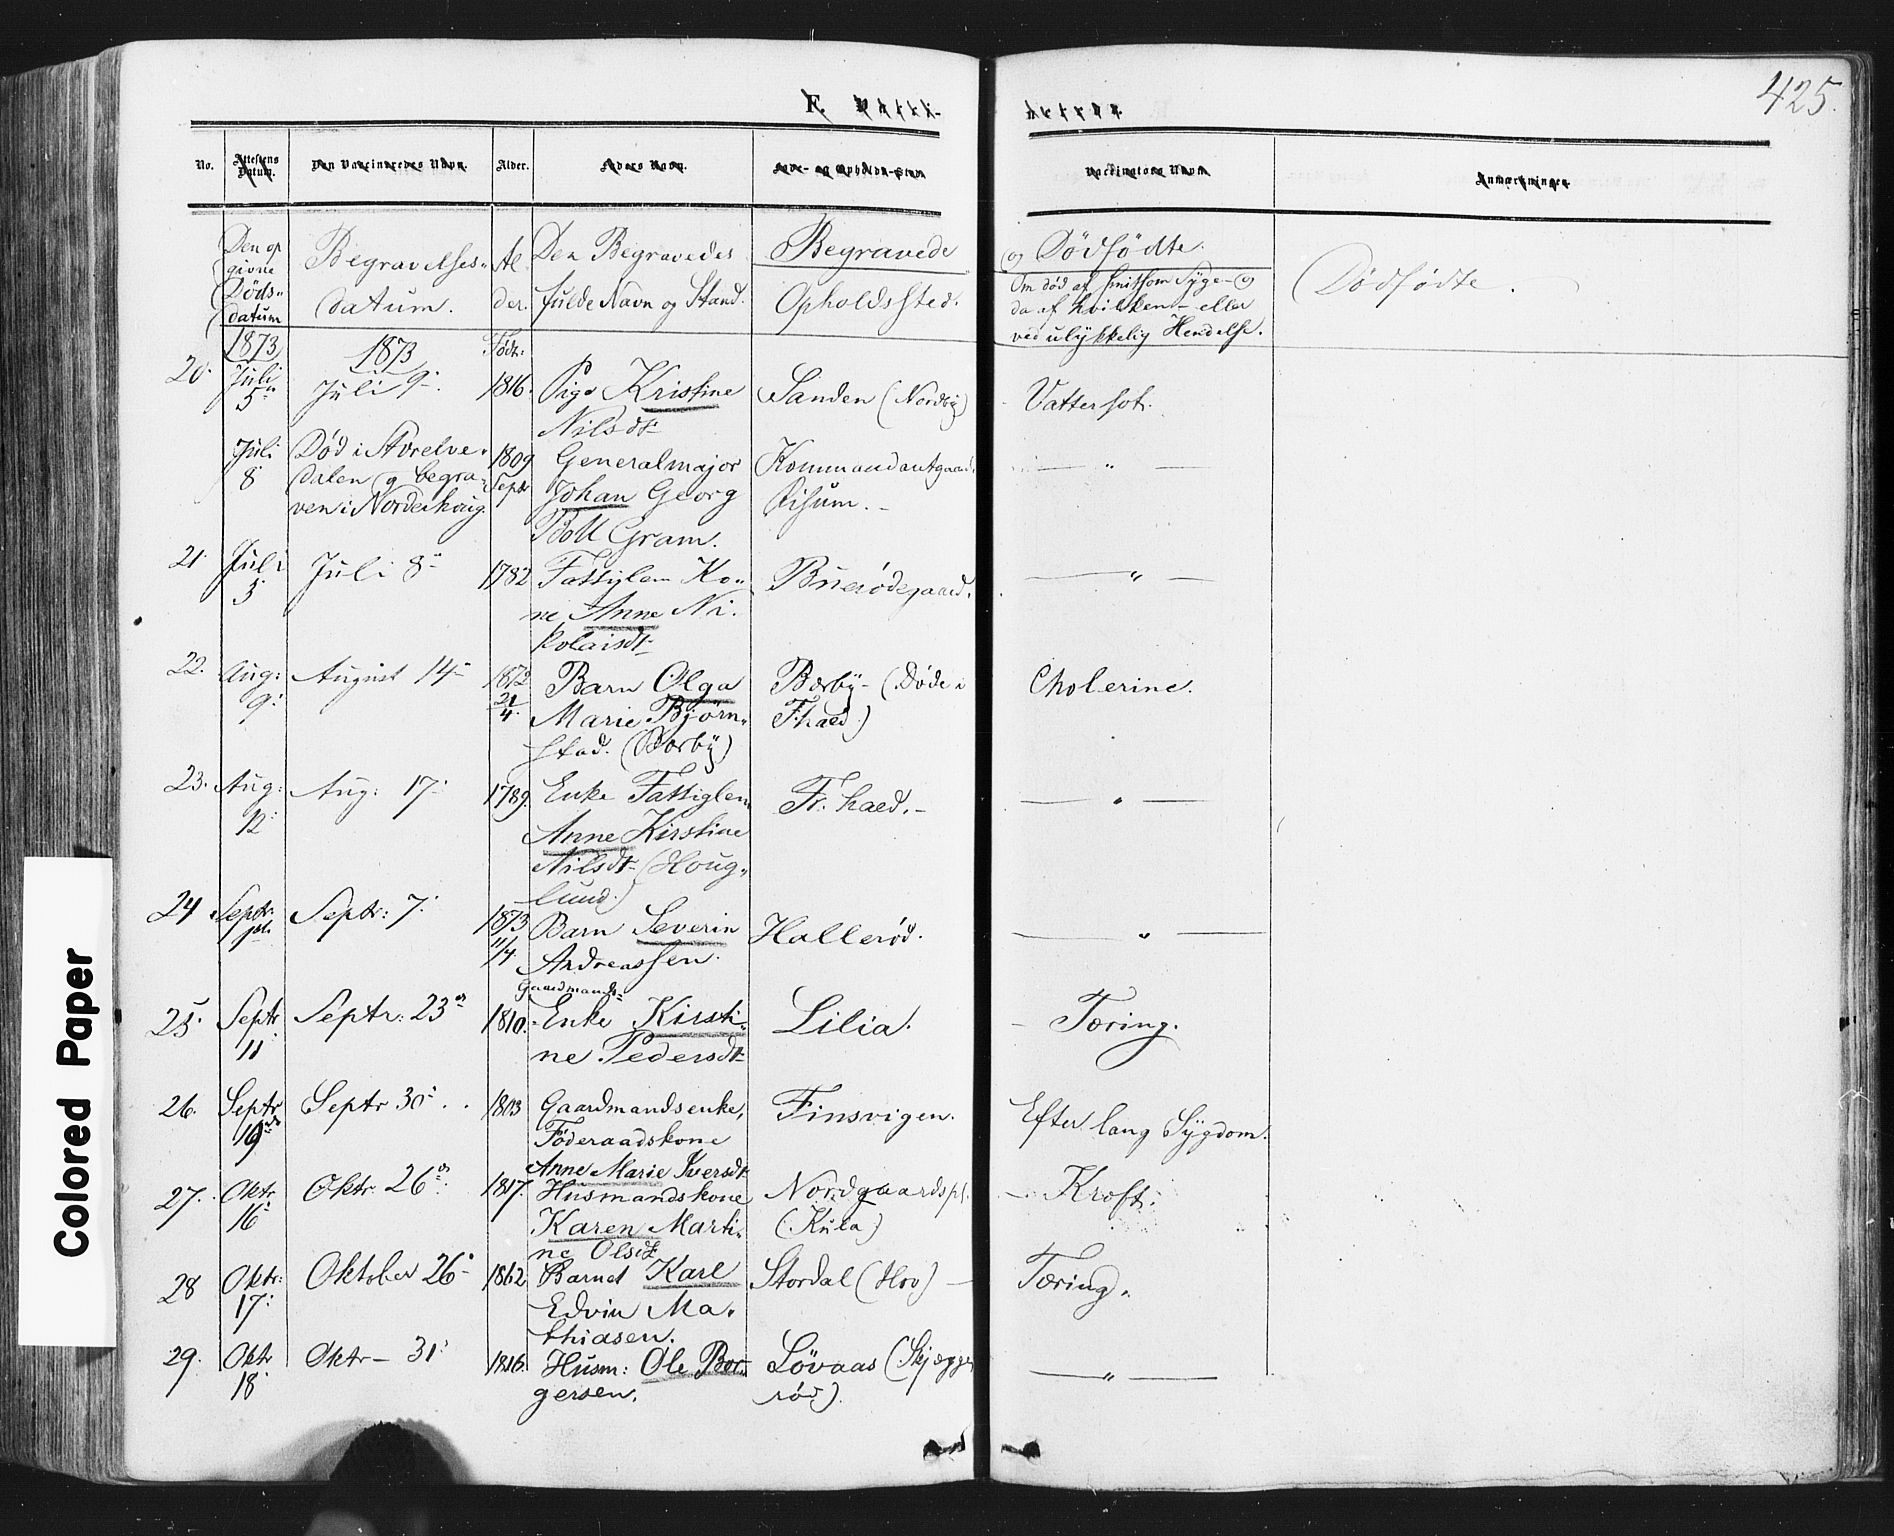 425.
No.
Attestens Datum.
Den Vaccineredes Navn.
Alder.
Faders Navn.
Føde- og Opholds-Sted.
Vaccinators Navn.
Anmærkninger.
Den opgivne Dødsdatum
Begravelsesdatum.
Alder.
Den Begravedes fulde Navn og Stand.
Begravede og Dødfødte.
Opholdssted.
Om død af smitsom Syge- og da af hvilken- eller ved ulykkelig Hendelse.
Dødfødte.
1873 1873 Født:
20. Juli 5 Juli 9. 1816. Pige Kristine Nilsdt Sanden (Nordby) Vattersot.
Juli 8 Død i Storelvedalen og begraven i Norderhoug. 1809 Septr Generalmajor Johan Georg Boll Gram. Kommandantgaard Risum. - — " —
21. Juli 3 Juli 8 1782 Fattiglem Kone Anne Nikolaisdt Buerødegaard. — " —
22. Aug: 9. August 14 1872 21/4. Barn Olga Marie Bjørnstad. (Børby) Børby- (Døde i Fr.hald.) Cholerine.
23. Aug: 12. Aug: 17. 1789. Enke Fattiglem Anne Kirstine Nilsdt (Houglund.) Fr. hald. - — " —
24 Septr. Septr: 7. 1873 11/4. Barn Severin Andreassen. Hallerød. — " —
25. Septr 11 Septr: 23 1810. Gaardmands- Enke Kirstine Pedersdt Lilia. - Tæring.
26. Septr 19 Septr 30. 1803 Gaardmandsenke, Føderaadskone Anne Marie Iversdt Finsvigen. Efter lang Sygdom.
27. Oktr. 16 Oktr. 26. 1817. Husmandskone Karen Martine Olsdt Nordgaardspl. (Kula) - Kræft.
28 Oktr: 17. Oktober 26 1862 Barnet Karl Edvin Mathiasen. Stordal (Hov) — Tæring.
29. Oktr 18 Oktr - 31. 1816. Husm: Ole Borgersen. Løvaas (Skjæggerød). — " —
Colored Paper